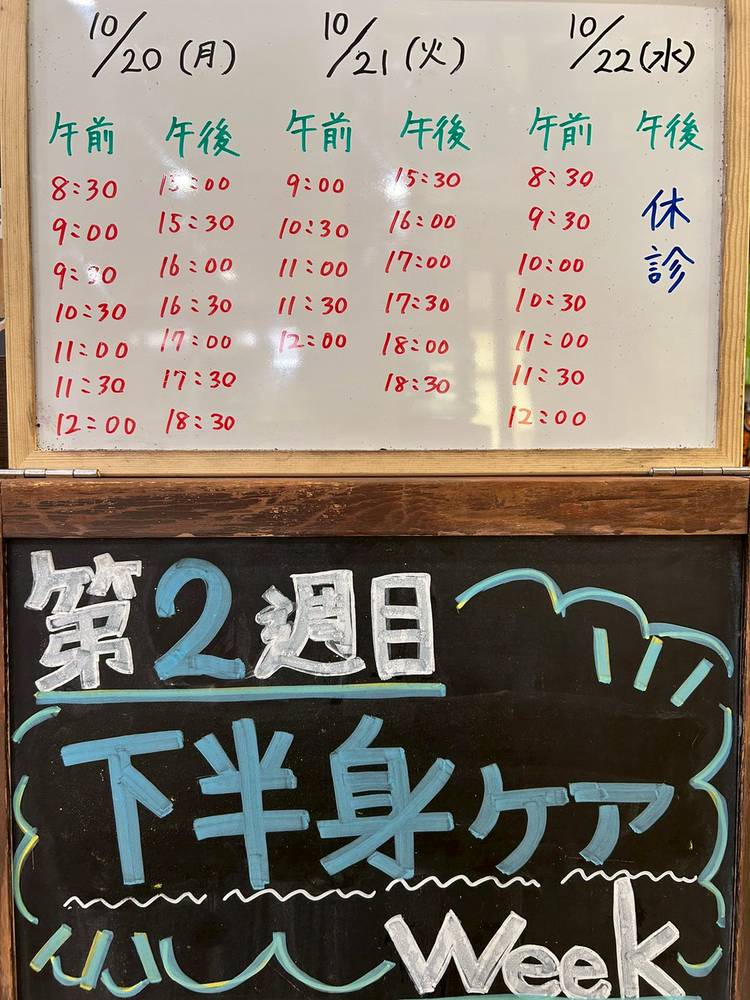 10/20(月) 10/21(火) 10/22(水)
午前 午後 午前 午後 午前 午後
8:30 15:00 9:00 15:30 8:30 休診
9:00 15:30 10:30 16:00 9:30
9:30 16:00 11:00 17:00 10:00
10:30 16:30 11:30 17:30 10:30
11:00 17:00 12:00 18:00 11:00
11:30 17:30 18:30 11:30
12:00 18:30 12:00
第2週目
下半身ケア
Week